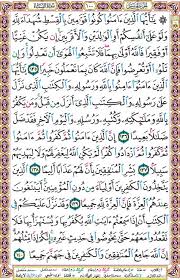 ١٠٠
يَٰٓأَيُّهَا ٱلَّذِينَ ءَامَنُوا۟ كُونُوا۟ قَوَّٰمِينَ بِٱلْقِسْطِ شُهَدَآءَ لِلَّهِ
وَلَوْ عَلَىٰٓ أَنفُسِكُمْ أَوِ ٱلْوَٰلِدَيْنِ وَٱلْأَقْرَبِينَ إِن يَكُنْ غَنِيًّا
أَوْ فَقِيرًا فَٱللَّهُ أَوْلَىٰ بِهِمَا فَلَا تَتَّبِعُوا۟ ٱلْهَوَىٰٓ أَن تَعْدِلُوا۟ وَإِن
تَلْوُۥٓا۟ أَوْ تُعْرِضُوا۟ فَإِنَّ ٱللَّهَ كَانَ بِمَا تَعْمَلُونَ خَبِيرًا ١٣٥ يَٰٓأَيُّهَا
ٱلَّذِينَ ءَامَنُوٓا۟ ءَامِنُوا۟ بِٱللَّهِ وَرَسُولِهِۦ وَٱلْكِتَٰبِ ٱلَّذِى نَزَّلَ
عَلَىٰ رَسُولِهِۦ وَٱلْكِتَٰبِ ٱلَّذِىٓ أَنزَلَ مِن قَبْلُ وَمَن يَكْفُرْ
بِٱللَّهِ وَمَلَٰٓئِكَتِهِۦ وَكُتُبِهِۦ وَرُسُلِهِۦ وَٱلْيَوْمِ ٱلْءَاخِرِ فَقَدْ ضَلَّ
ضَلَٰلًۢا بَعِيدًا ١٣٦ إِنَّ ٱلَّذِينَ ءَامَنُوا۟ ثُمَّ كَفَرُوا۟ ثُمَّ ءَامَنُوا۟
ثُمَّ كَفَرُوا۟ ثُمَّ ٱزْدَادُوا۟ كُفْرًا لَّمْ يَكُنِ ٱللَّهُ لِيَغْفِرَ لَهُمْ وَلَا لِيَهْدِيَهُمْ
سَبِيلًۢا ١٣٧ بَشِّرِ ٱلْمُنَٰفِقِينَ بِأَنَّ لَهُمْ عَذَابًا أَلِيمًا ١٣٨ ٱلَّذِينَ
يَتَّخِذُونَ ٱلْكَٰفِرِينَ أَوْلِيَآءَ مِن دُونِ ٱلْمُؤْمِنِينَ أَيَبْتَغُونَ
عِندَهُمُ ٱلْعِزَّةَ فَإِنَّ ٱلْعِزَّةَ لِلَّهِ جَمِيعًا ١٣٩ وَقَدْ نَزَّلَ عَلَيْكُمْ
فِى ٱلْكِتَٰبِ أَنْ إِذَا سَمِعْتُمْ ءَايَٰتِ ٱللَّهِ يُكْفَرُ بِهَا وَيُسْتَهْزَأُ بِهَا فَلَا
تَقْعُدُوا۟ مَعَهُمْ حَتَّىٰ يَخُوضُوا۟ فِى حَدِيثٍ غَيْرِهِۦٓ إِنَّكُمْ إِذًا مِّثْلُهُمْ
إِنَّ ٱللَّهَ جَامِعُ ٱلْمُنَٰفِقِينَ وَٱلْكَٰفِرِينَ فِى جَهَنَّمَ جَمِيعًا ١٤٠